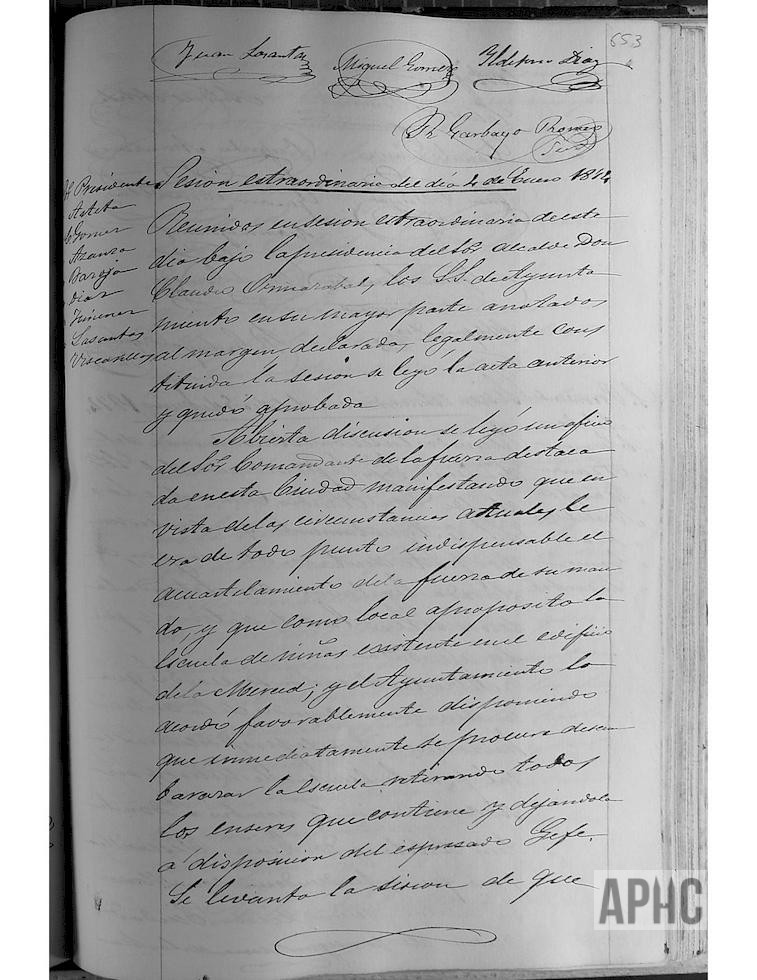 653
Juan Losantos Miguel Gomez Ildefonso Diaz
Garbayo Romeo
Srio
Sesion estraordinaria del dia 4 de Enero 1874
Sr Presidente
Gomez
Azanza
Barojo
Diaz
Jimenez
Losantos
Reunidos en sesion estraordinaria de este
dia bajo la presidencia del Sor alcalde Don
Claudio los S.S. de Ayunta
miento en su mayor parte anotados
al margen declarada, legalmente cons
tituida la sesion se leyó la acta anterior
y quedó aprobada
Abierta discusion se leyó un oficio
del Sor Comandante de la fuerza destaca
da en esta Ciudad manifestando que en
vista de las circunstancias actuales le
era de todo punto indispensable el
acuartelamiento de la fuerza de su man
do, y que como local aproposito la
escuela de niñas existente en el edificio
de la Merced; y el Ayuntamiento lo
acordó favorablemente disponiendo
que inmediatamente se procura desem
barazar la escuela retirando todos
los enseres que contiene y dejandola
á disposicion del espresado Gefe.
Se levanto la sision de que
APHC